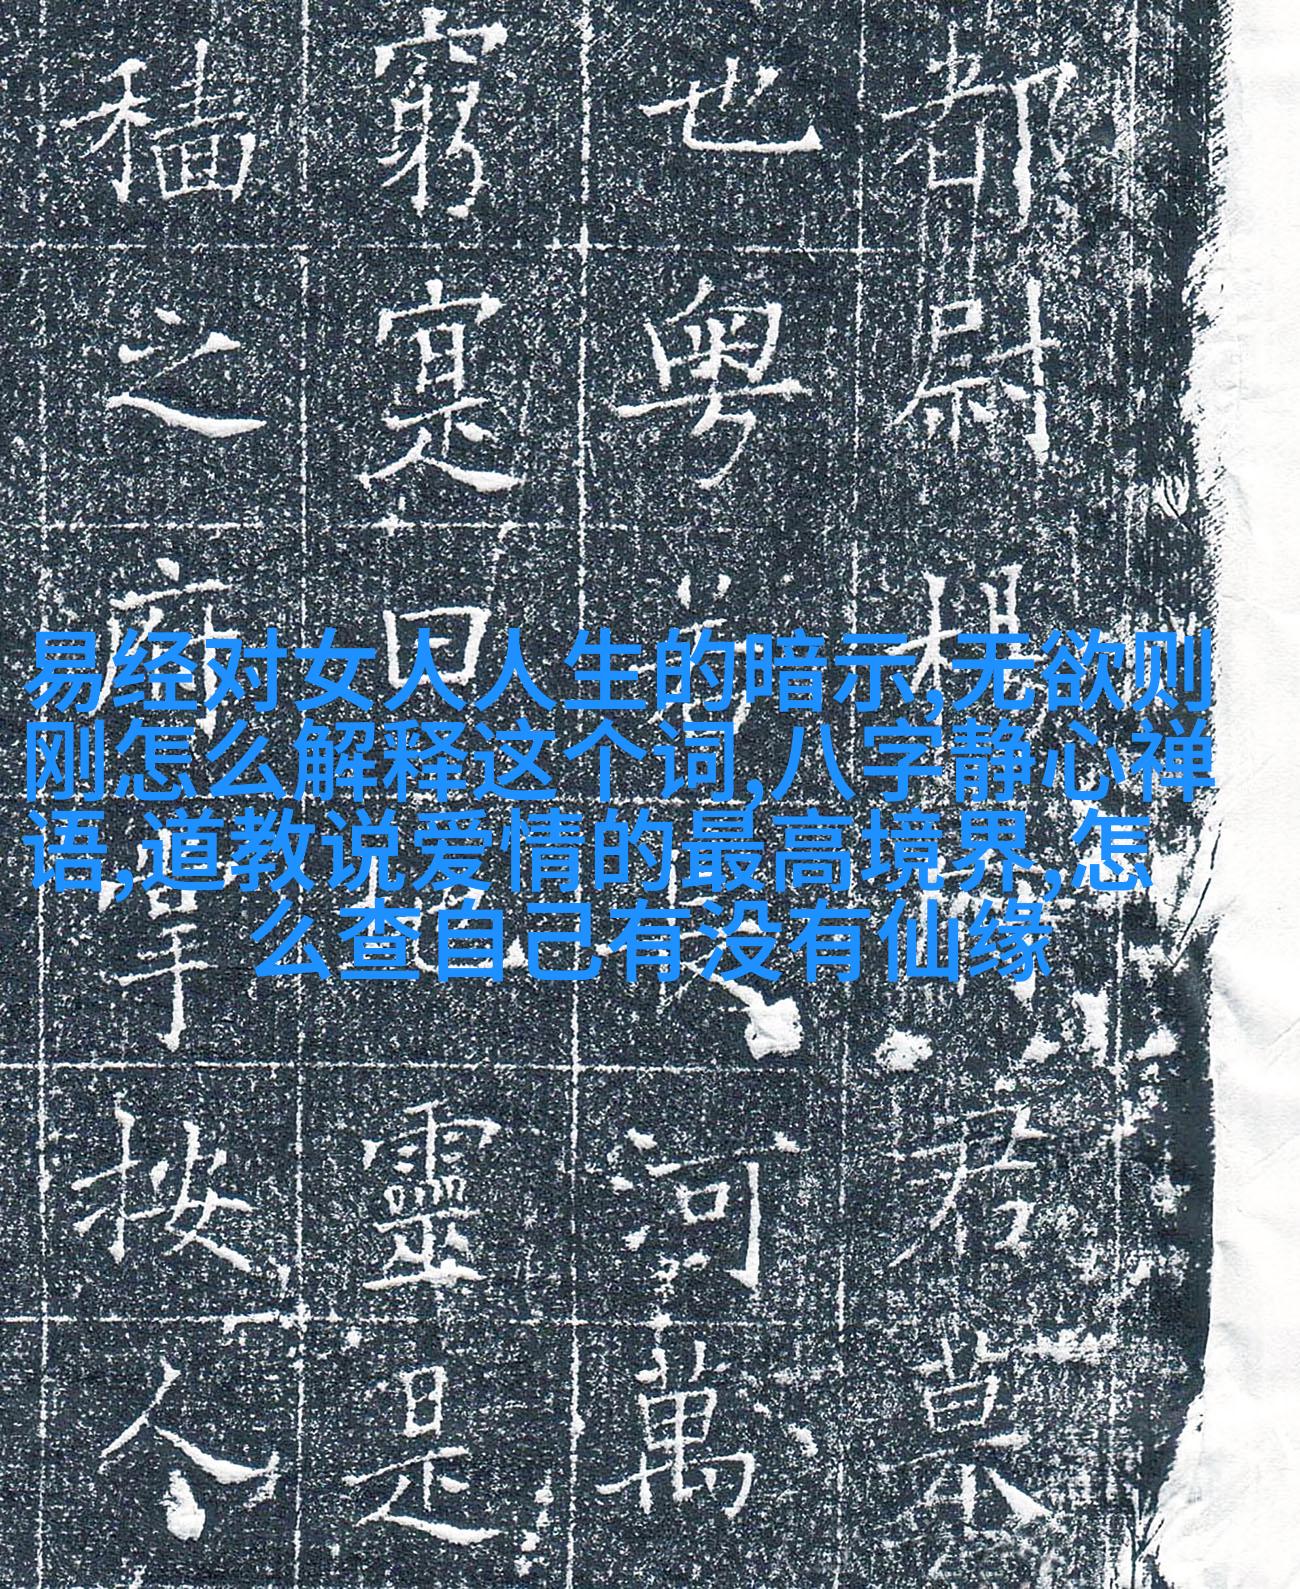 易经对女人人生的暗示,无欲则
刚怎么解释这个词,八字静心禅
语,道教说爱情的最高境界,怎
么查自己有没有仙缘
都尉楊君
也粵河萬
窮寔曰靈是
穡之府按人